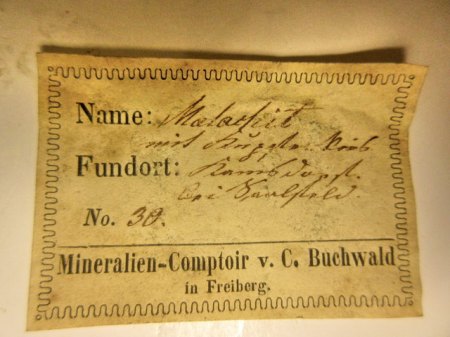 Name: Malachit
mit Kupferkies
Fundort: Kamsdorf
bei Saalfeld.
No. 30.
Mineralien-Comptoir v. C. Buchwald
in Freiberg.